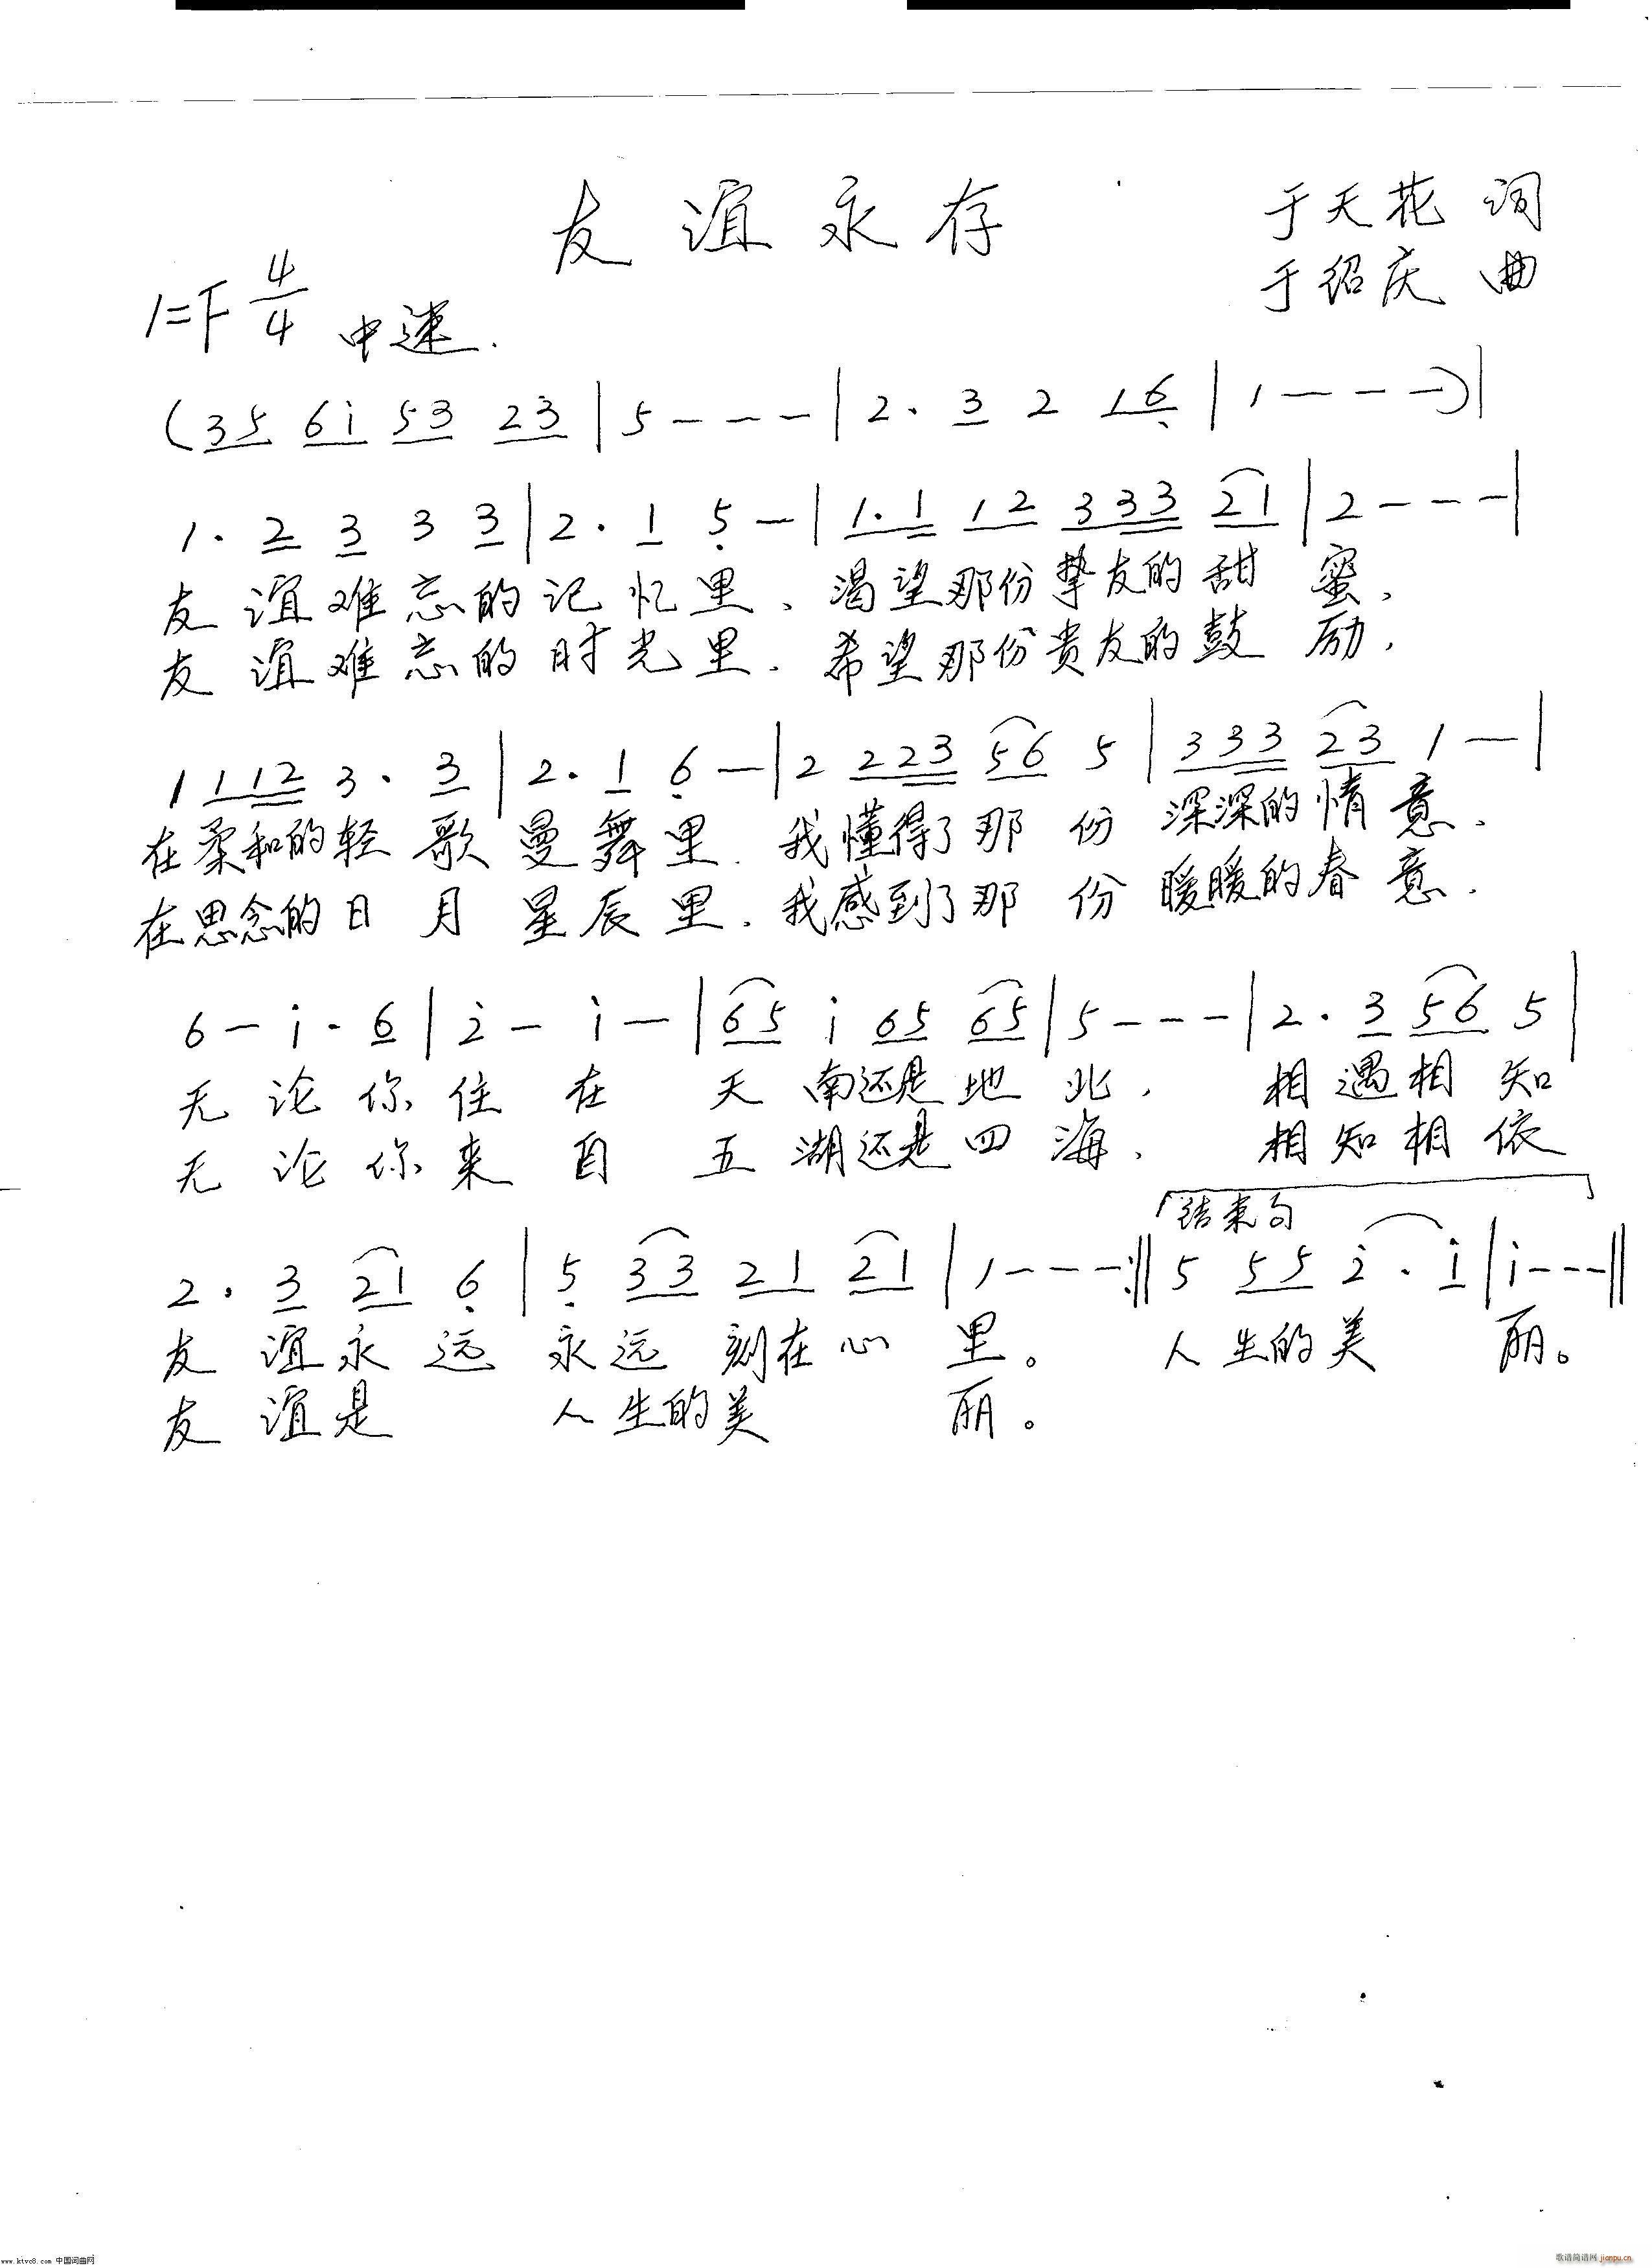 友谊永存
于天花 词
于绍庆 曲
1=F 4/4 中速.
(35 6i 53 23 | 5 - - - | 2. 3 2 16 | 1 - - - )|
1. 2 3 3 3 | 2. 1 5 - | 1.1 12 333 21 | 2 - - - |
友谊难忘的记忆里、渴望那份挚友的甜蜜,
友谊难忘的时光里. 希望那份贵友的鼓励,
1 112 3. 3 | 2. 1 6 - | 2 223 56 5 | 333 23 1 - |
在柔和的轻歌曼舞里. 我懂得了那份深深的情意、
在思念的日月星辰里. 我感到了那份暖暖的春意.
6 - i. 6 | 2 - i - | 65 i 65 65 | 5 - - - | 2. 3 56 5 |
无论你住在天南还是地北, 相遇相知
无论你来自五湖还是四海, 相知相依
结束句
2. 3 21 6 | 5 33 21 21 | 1 - - - :‖ 5 55 2. i | i - - - ‖
友谊永远永远刻在心里。 人生的美丽。
友谊是人生的美丽。
www.ktvc8.com 中国词曲网
歌谱简谱网 jianpu.cn